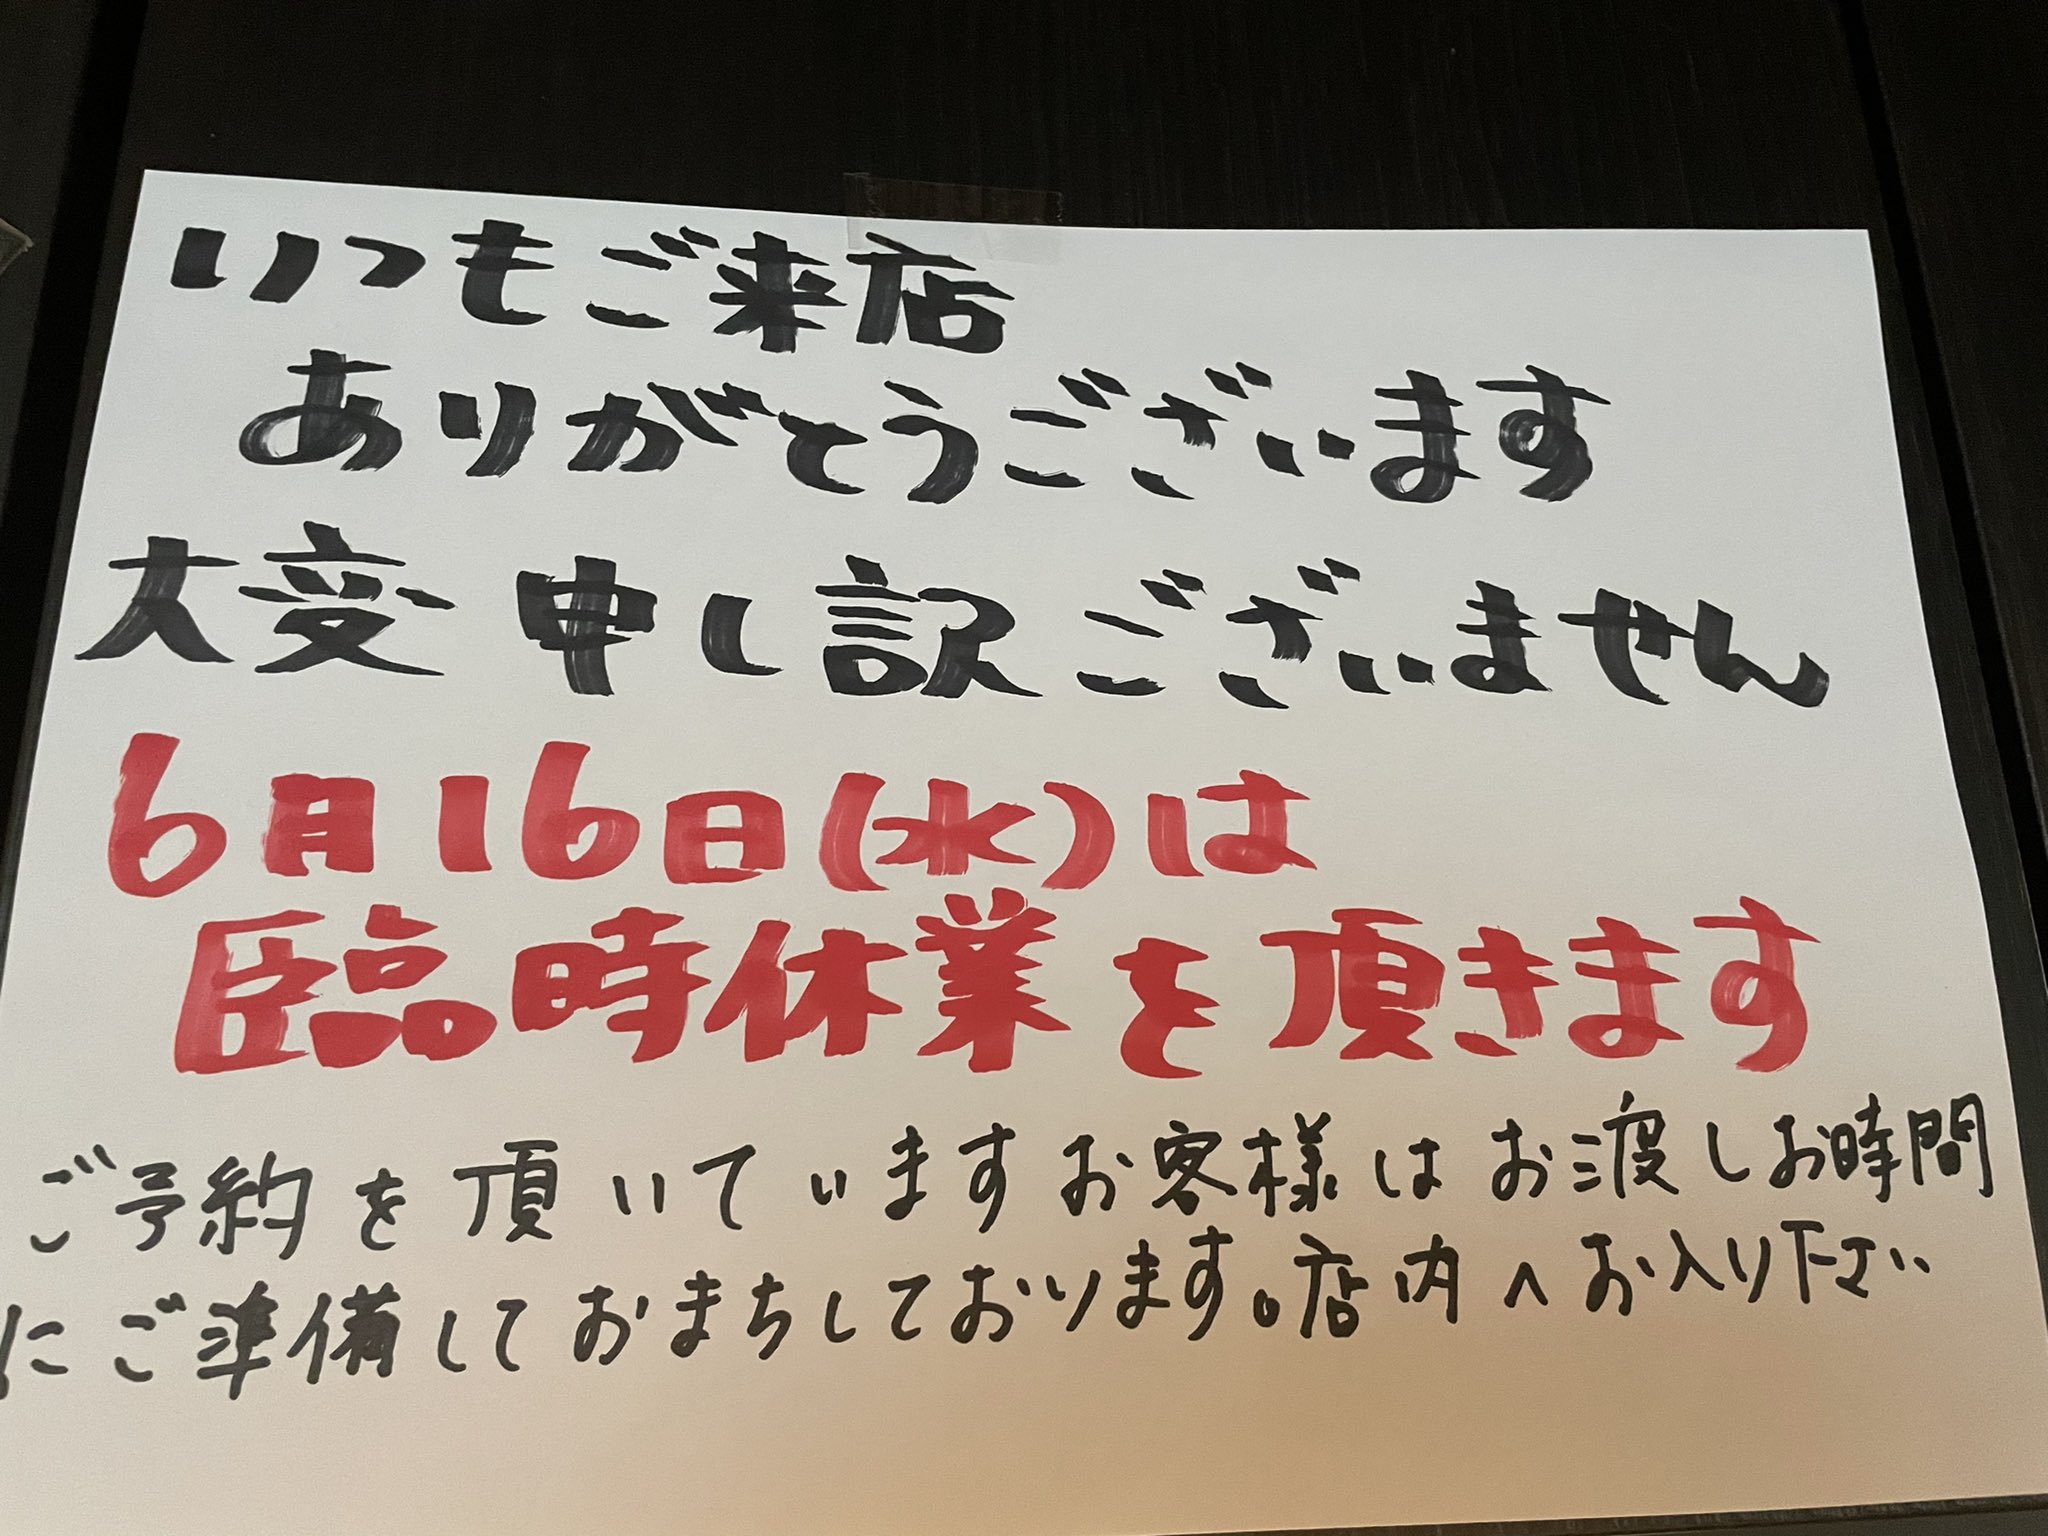 いつもご来店
ありがとうございます
大変申し訳ございません
6月16日(水)は
臨時休業を頂きます
ご予約を頂いていますお客様はお渡しお時間
にご準備しておまちしております。店内へお入り下さい